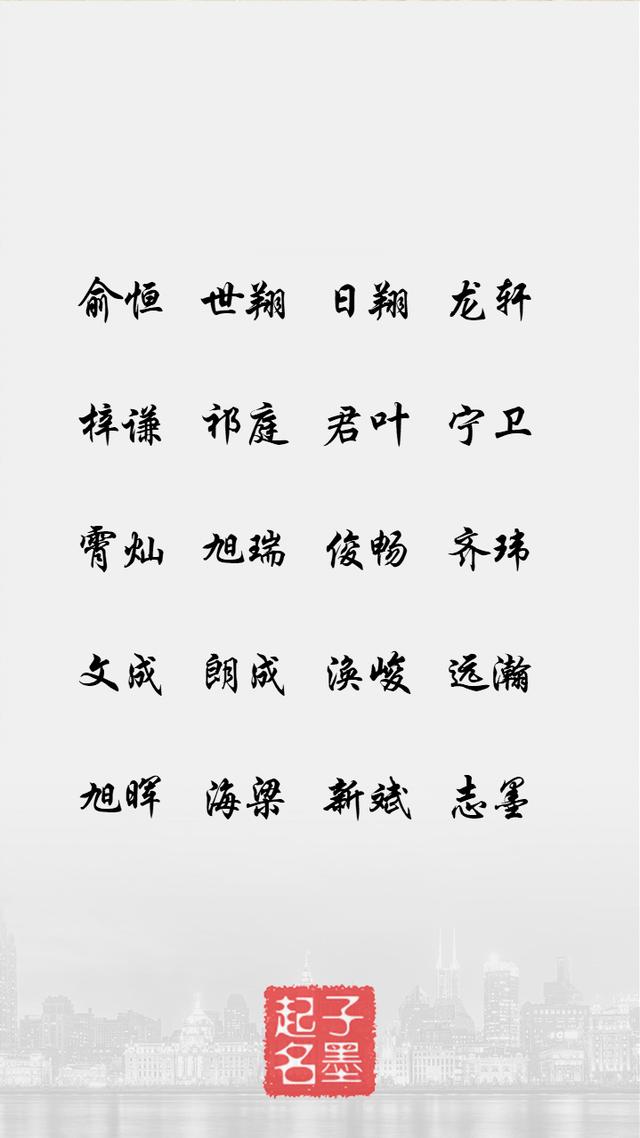 俞恒 世翔 日翔 龙轩
梓谦 祁庭 君叶 宁卫
霄灿 旭瑞 俊畅 齐玮
文成 朗成 涣峻 远瀚
旭晖 海梁 新斌 志墨
子墨
起名